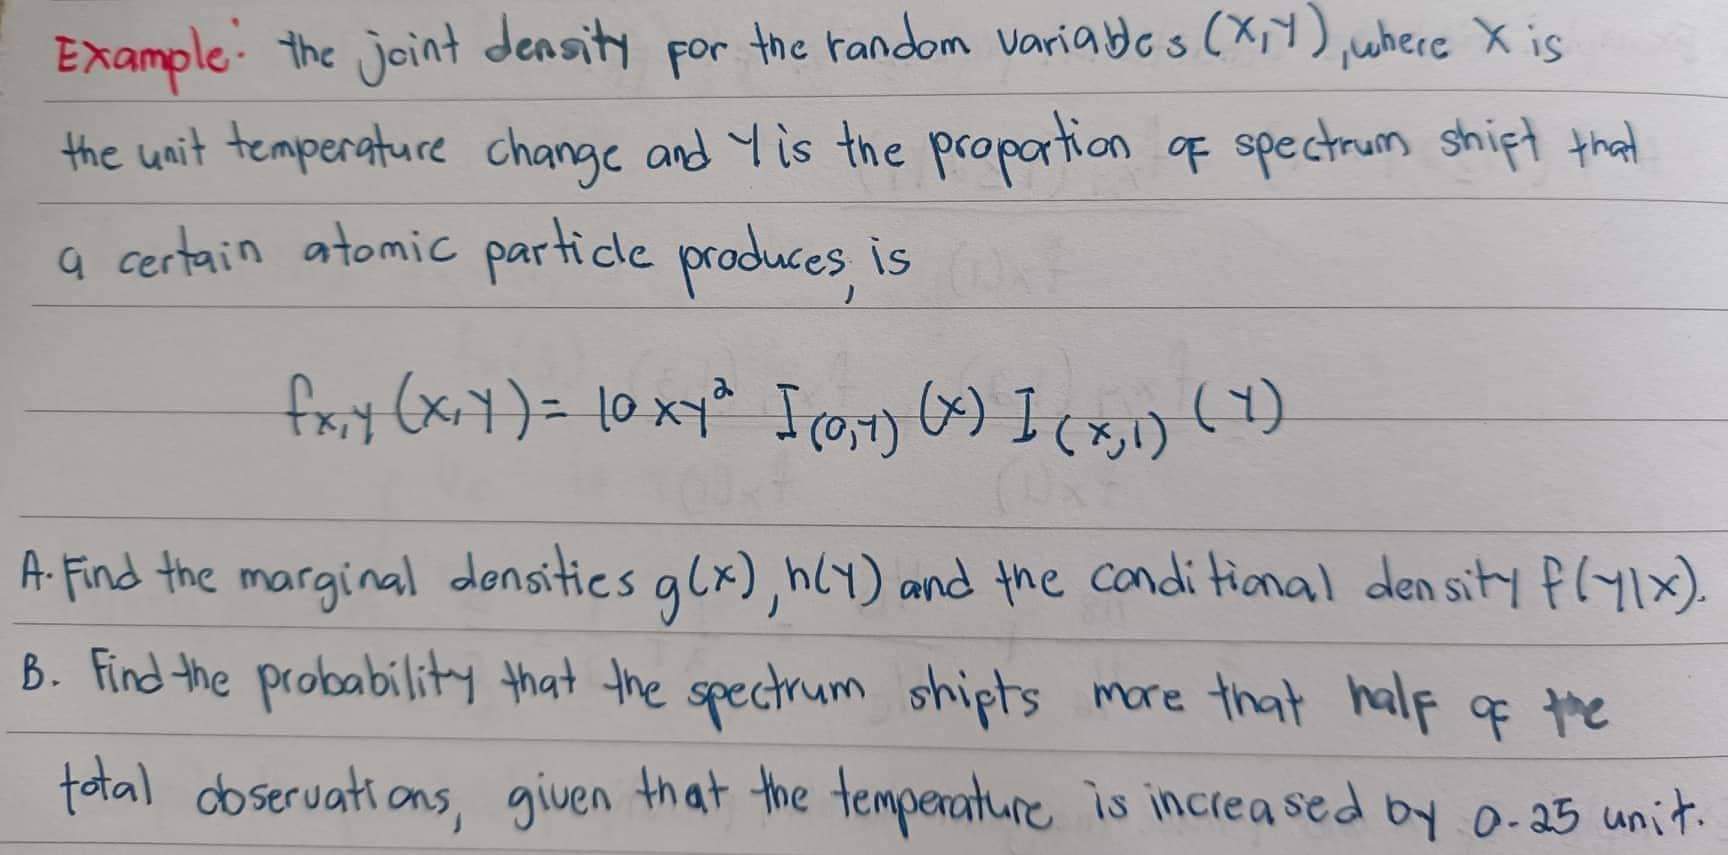 Example: the joint density for the random variables (X,Y), where X is
the unit temperature change and Y is the proportion of spectrum shift that
a certain atomic particle produces, is
fx,y (x,y) = 10xy² I(0,y) (x) I(x,1) (y)
A. Find the marginal densities g(x), h(y) and the conditional density f(y|x).
B. Find the probability that the spectrum shifts more that half of the
total observations, given that the temperature is increased by 0.25 unit.